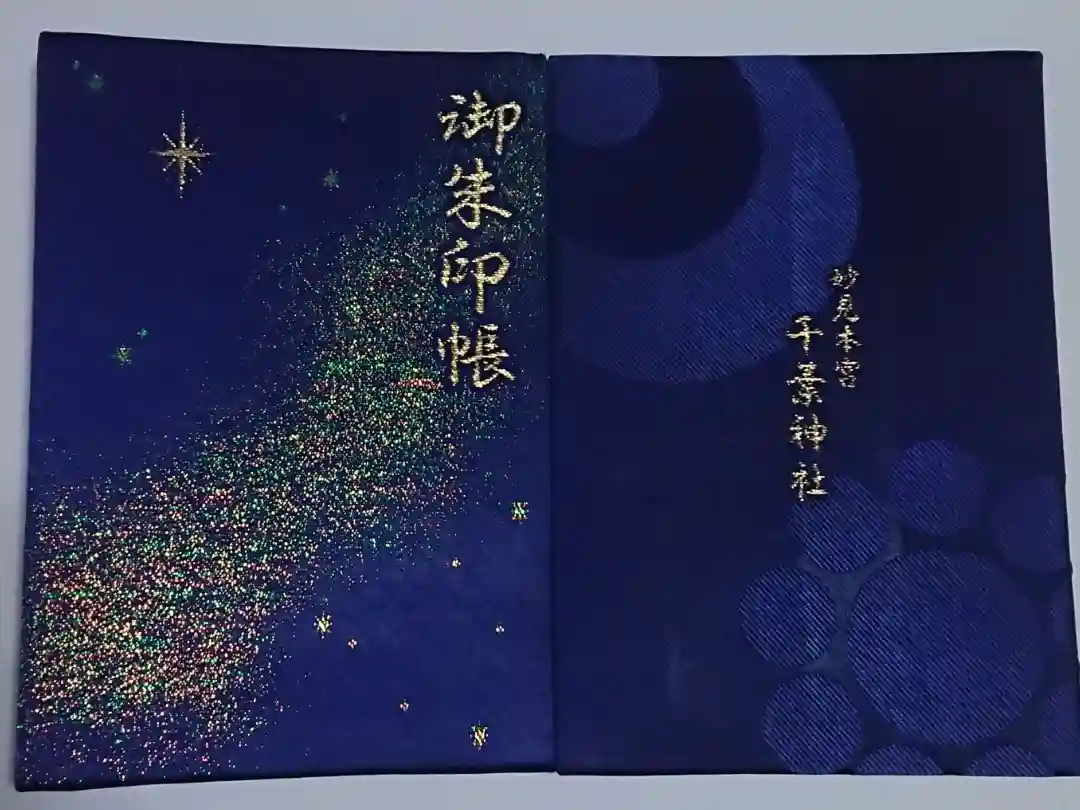 御朱印帳
妙見本宮
千葉神社